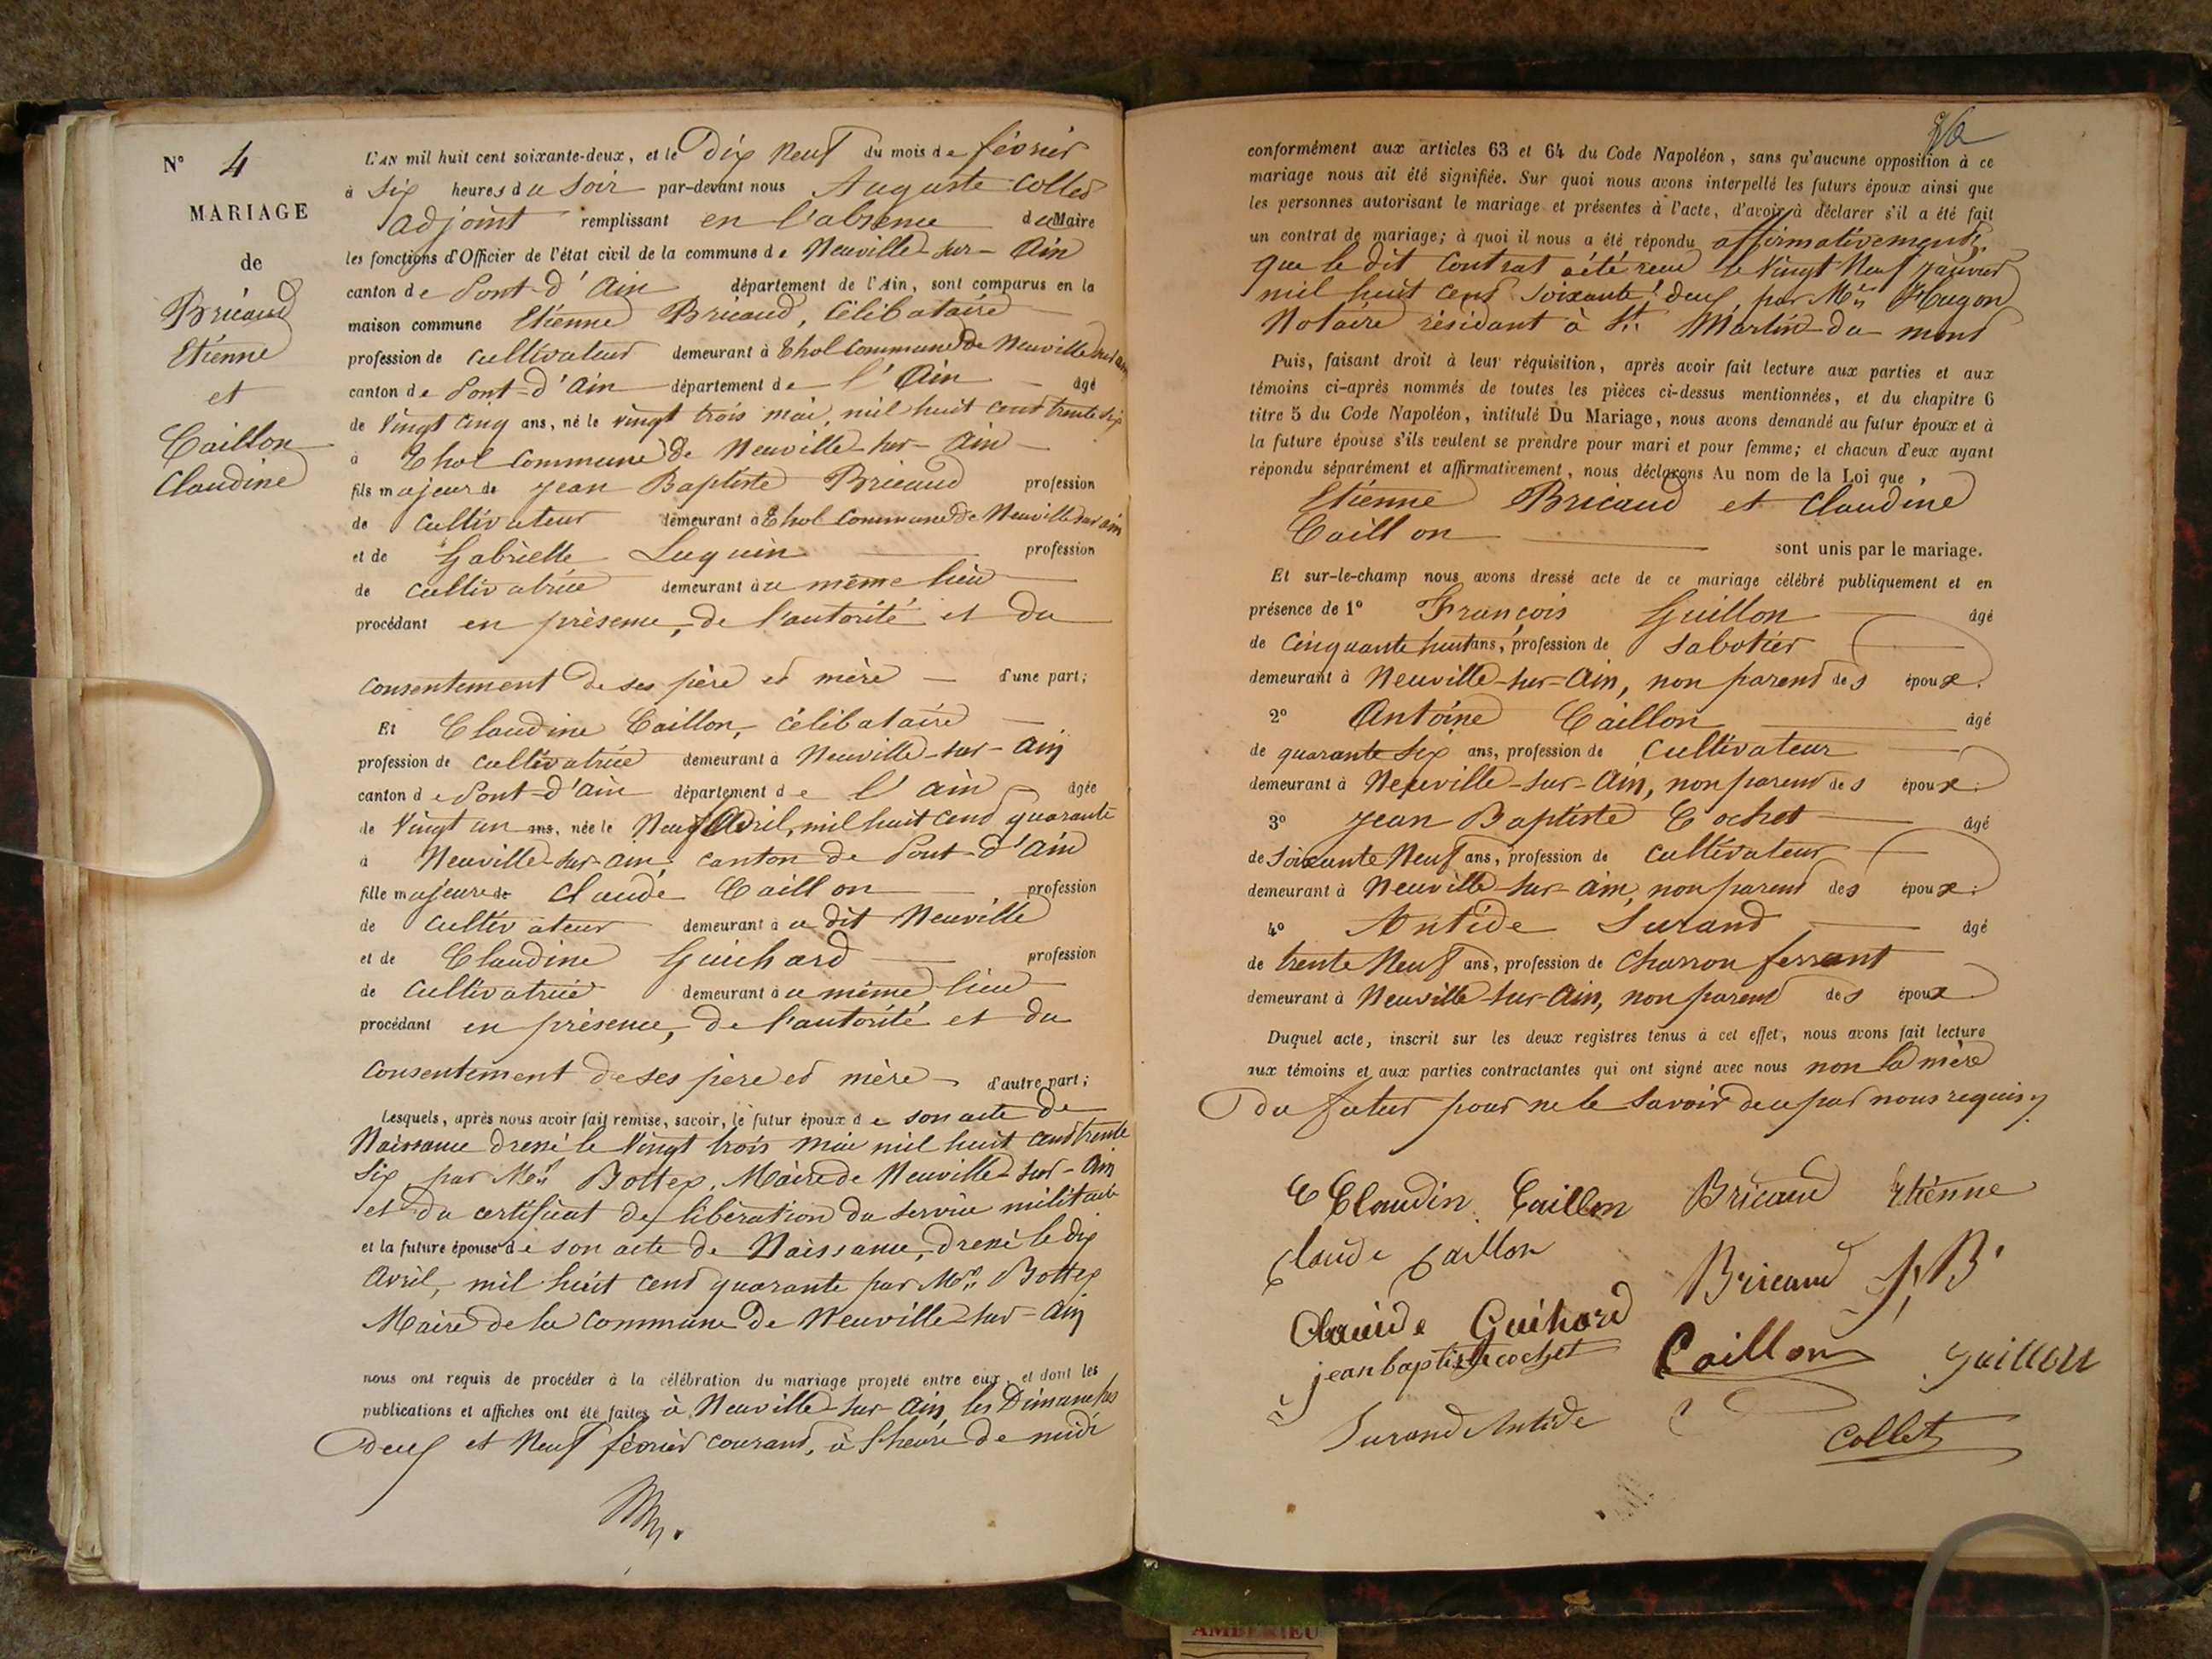 N° 4
MARIAGE
de
Bricaud
Etienne
et
Caillon
Claudine
L'AN mil huit cent soixante-deux, et le Dix Neuf du mois de février
à Six heures du Soir par-devant nous Auguste Collet
adjoint remplissant en l'absence du Maire
les fonctions d'Officier de l'état civil de la commune de Neuville-sur-Ain
canton de Pont-d'Ain département de l'Ain, sont comparus en la
maison commune Etienne Bricaud, Célibataire
profession de cultivateur demeurant à Thol commune de Neuville sur ain
canton de Pont-d'Ain département de l'Ain âgé
de Vingt Cinq ans, né le vingt trois mai, mil huit cent trente six
à Thol commune de Neuville-sur-Ain
fils majeur de Jean Baptiste Bricaud profession
de Cultivateur demeurant à Thol commune de Neuville sur ain
et de Gabrielle Luquin profession
de cultivatrice demeurant au même lieu
procédant en présence, de l'autorité et du
consentement de ses père et mère d'une part;
Et Claudine Caillon, célibataire
profession de cultivatrice demeurant à Neuville-sur-Ain
canton de Pont-d'Ain département de l'Ain âgée
de Vingt un ans, née le Neuf Avril, mil huit cent quarante
à Neuville-sur-ain, canton de Pont-d'Ain
fille majeure de Claude Caillon profession
de Cultivateur demeurant au dit Neuville
et de Claudine Guichard profession
de Cultivatrice demeurant au même lieu
procédant en présence, de l'autorité et du
Consentement de ses père et mère d'autre part;
Lesquels, après nous avoir fait remise, savoir, le futur époux de son acte de
Naissance dressé le Vingt trois mai mil huit cent trente
Six par Mr. Bottex, Maire de Neuville-sur-Ain
et du certificat de libération du service militaire
et la future épouse de son acte de Naissance, dressé le dix
Avril, mil huit cent quarante par Mr. Bottex
Maire de la commune de Neuville-sur-Ain
nous ont requis de procéder à la célébration du mariage projeté entre eux, et dont les
publications et affiches ont été faites à Neuville-sur-Ain, les Dimanches
deux et Neuf février courant, à l'heure de midi
conformément aux articles 63 et 64 du Code Napoléon, sans qu'aucune opposition à ce
mariage nous ait été signifiée. Sur quoi nous avons interpellé les futurs époux ainsi que
les personnes autorisant le mariage et présentes à l'acte, d'avoir à déclarer s'il a été fait
un contrat de mariage; à quoi il nous a été répondu affirmativement,
que le dit Contrat a été reçu le Vingt Neuf janvier
mil huit cent soixante deux, par Me. Hugon
Notaire résidant à St. Martin-du-mont
Puis, faisant droit à leur réquisition, après avoir fait lecture aux parties et aux
témoins ci-après nommés de toutes les pièces ci-dessus mentionnées, et du chapitre 6
titre 5 du Code Napoléon, intitulé Du Mariage, nous avons demandé au futur époux et à
la future épouse s'ils veulent se prendre pour mari et pour femme; et chacun d'eux ayant
répondu séparément et affirmativement, nous déclarons Au nom de la Loi que
Etienne Bricaud et Claudine
Caillon sont unis par le mariage.
Et sur-le-champ nous avons dressé acte de ce mariage célébré publiquement et en
présence de 1° François Guillon âgé
de Cinquante huit ans, profession de Sabotier
demeurant à Neuville-sur-Ain, non parent des époux.
2° Antoine Caillon âgé
de quarante six ans, profession de Cultivateur
demeurant à Neuville-sur-Ain, non parent des époux.
3° Jean Baptiste Cochet âgé
de Soixante Neuf ans, profession de Cultivateur
demeurant à Neuville-sur-ain, non parent des époux.
4° Antide Surand âgé
de trente Neuf ans, profession de Charron ferrant
demeurant à Neuville-sur-Ain, non parent des époux
Duquel acte, inscrit sur les deux registres tenus à cet effet, nous avons fait lecture
aux témoins et aux parties contractantes qui ont signé avec nous non la mère
du futur pour ne le savoir de ce par nous requis.
Claudin Caillon Bricaud Etiénne
Claude Caillon
Bricaud J. B.
Claude Guihard
jean baptiste cochet Caillon Guillon
Surand Antide
Collet
AMBERIEU